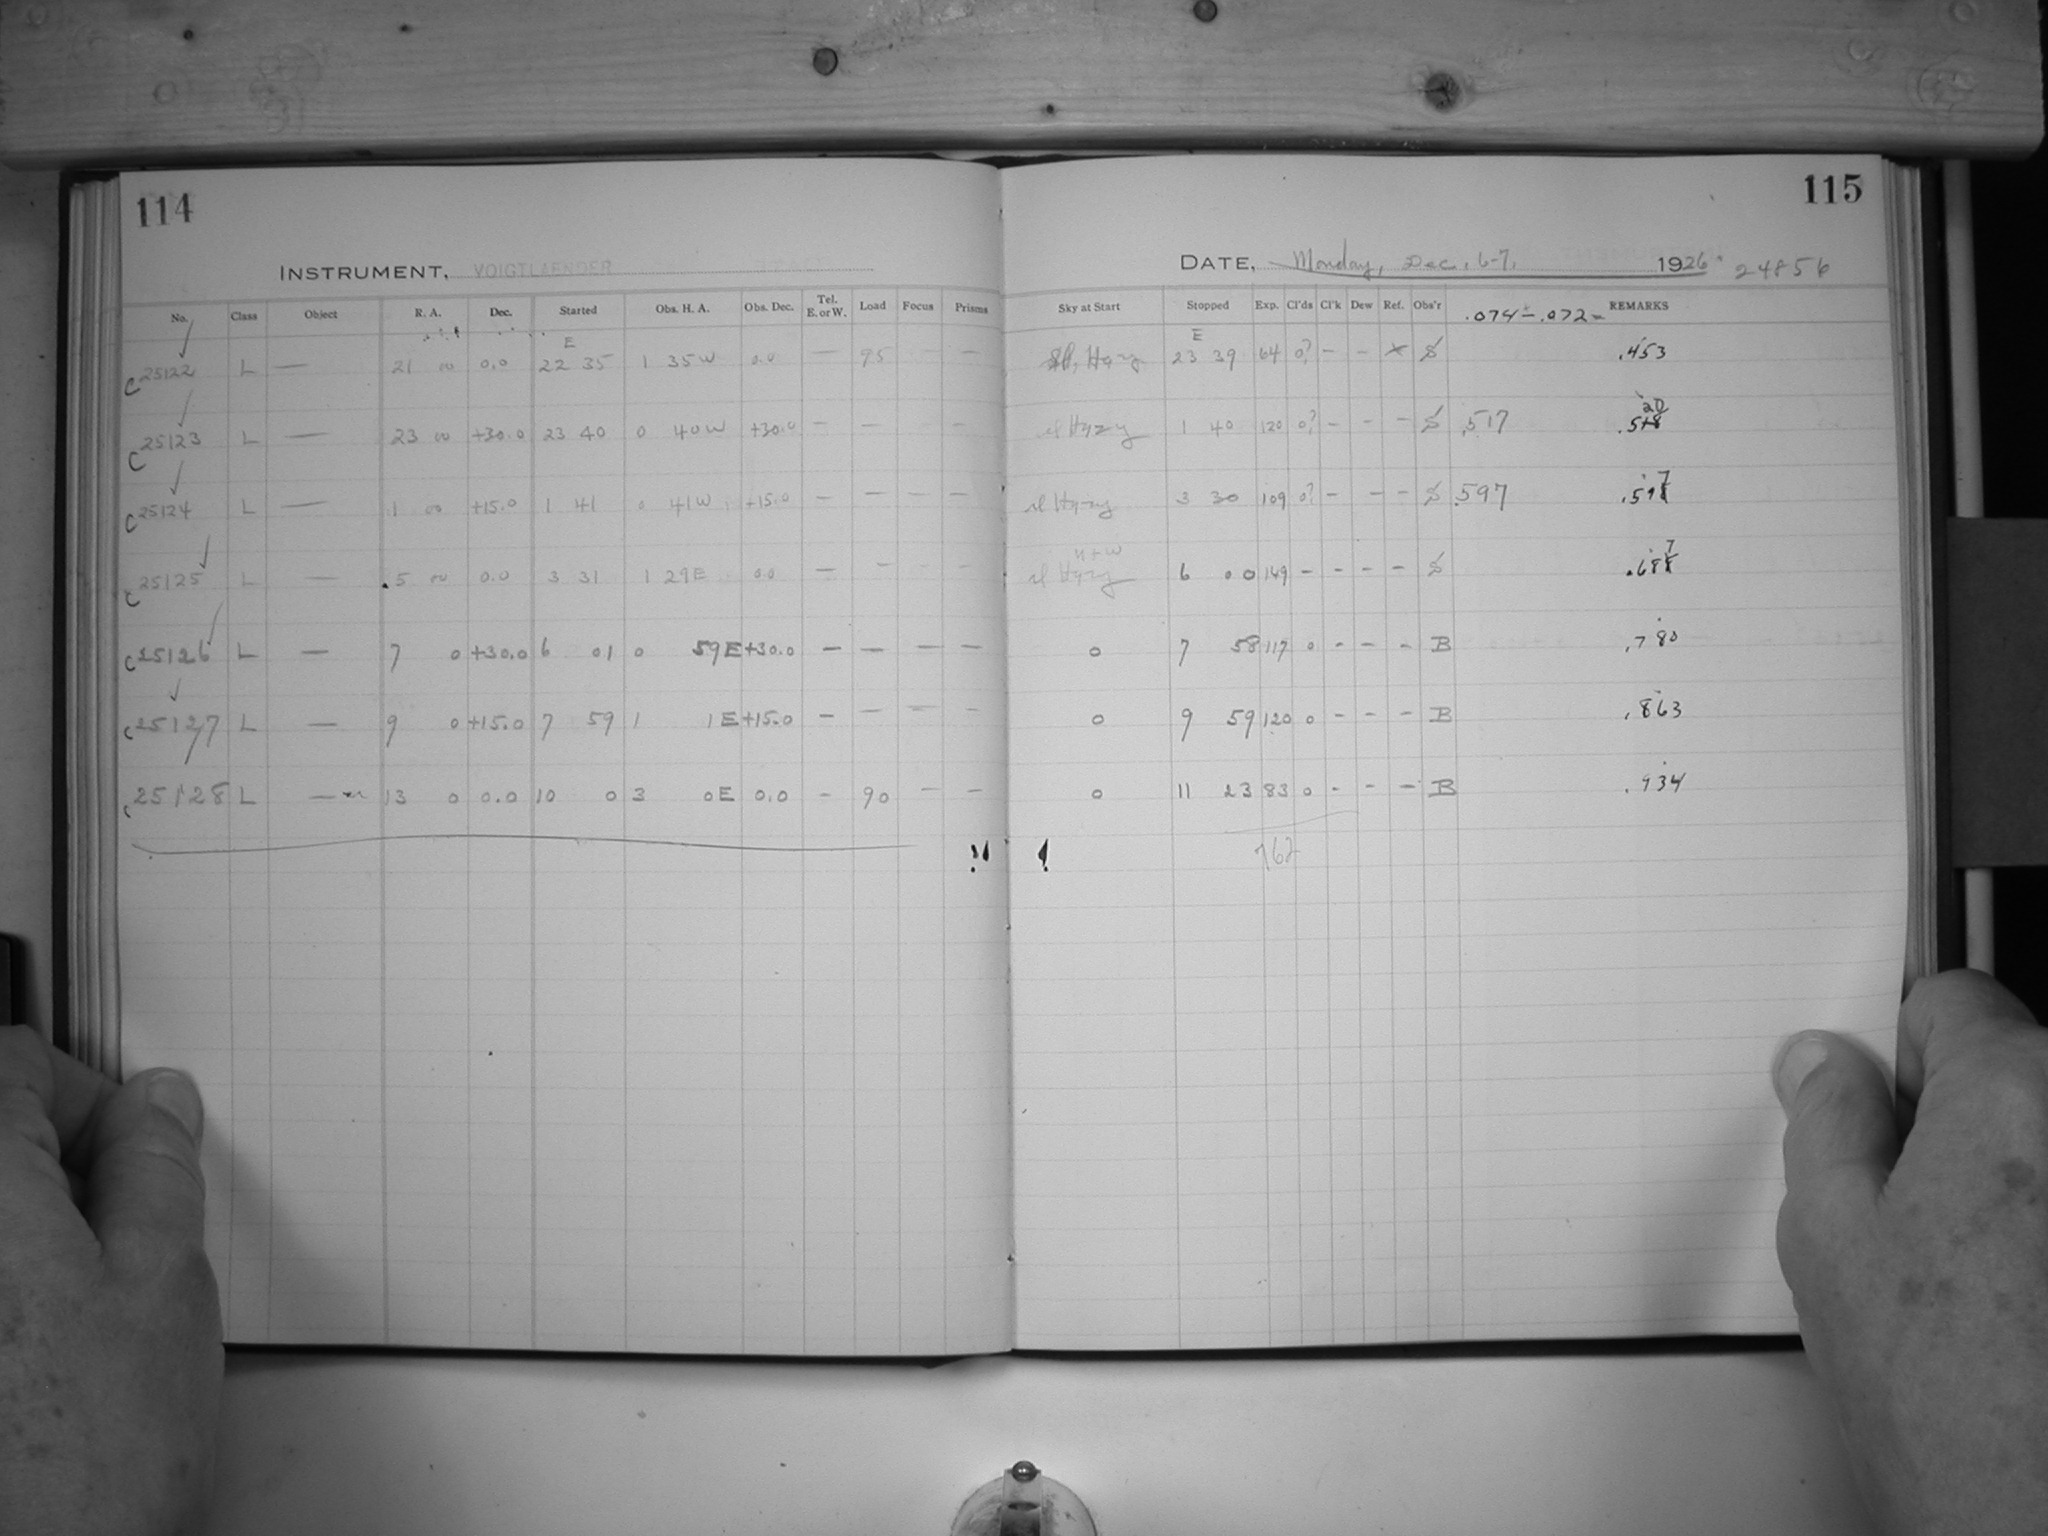 114
115
INSTRUMENT, VOIGTLAENDER
DATE, Monday, Dec. 6-7, 1926 24856
No. Class Object R. A. Dec. Started Obs. H. A. Obs. Dec. Tel. E. or W. Load Focus Prisms Sky at Start Stopped Exp. Cl'ds Cl'k Dew Ref. Obs'r .074 - .072 = REMARKS
E E
C 25122 L — 21 00 0.0 22 35 1 35 W 0.0 — 95 — — Hazy 23 39 64 0? - - x S .453
C 25123 L — 23 00 +30.0 23 40 0 40 W +30.0 — — — — sl Hazy 1 40 120 0? - - - S .517 .518 20
C 25124 L — 1 00 +15.0 1 41 0 41 W +15.0 — — — — sl Hazy 3 30 109 0? - - - S .597 .598 7
N + W
C 25125 L — 5 00 0.0 3 31 1 29 E 0.0 — — — — sl Hazy 6 00 149 - - - - S .688 7
C 25126 L — 7 0 +30.0 6 01 0 59 E +30.0 — — — — 0 7 58 117 0 - - - B .780
C 25127 L — 9 0 +15.0 7 59 1 1 E +15.0 — — — — 0 9 59 120 0 - - - B .863
C 25128 L — 13 0 0.0 10 0 3 0 E 0.0 - 90 — — 0 11 23 83 0 - - - B .934
762